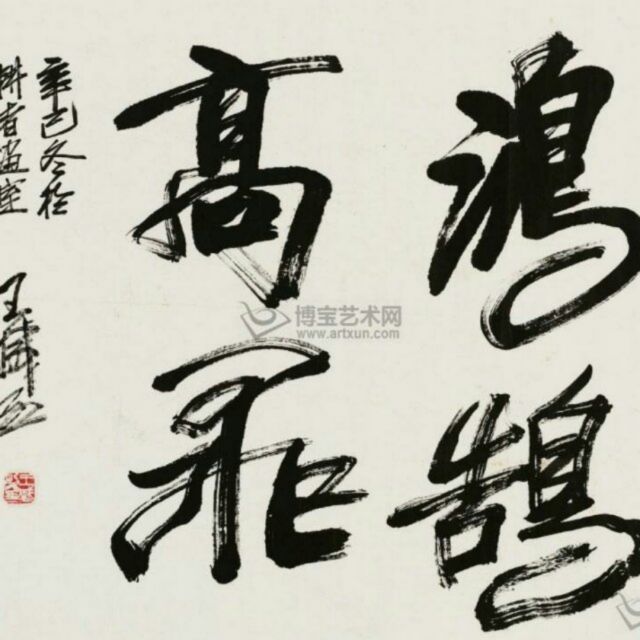 鴻鵠
高飛
辛巳冬於
博宝艺术网
www.artxun.com